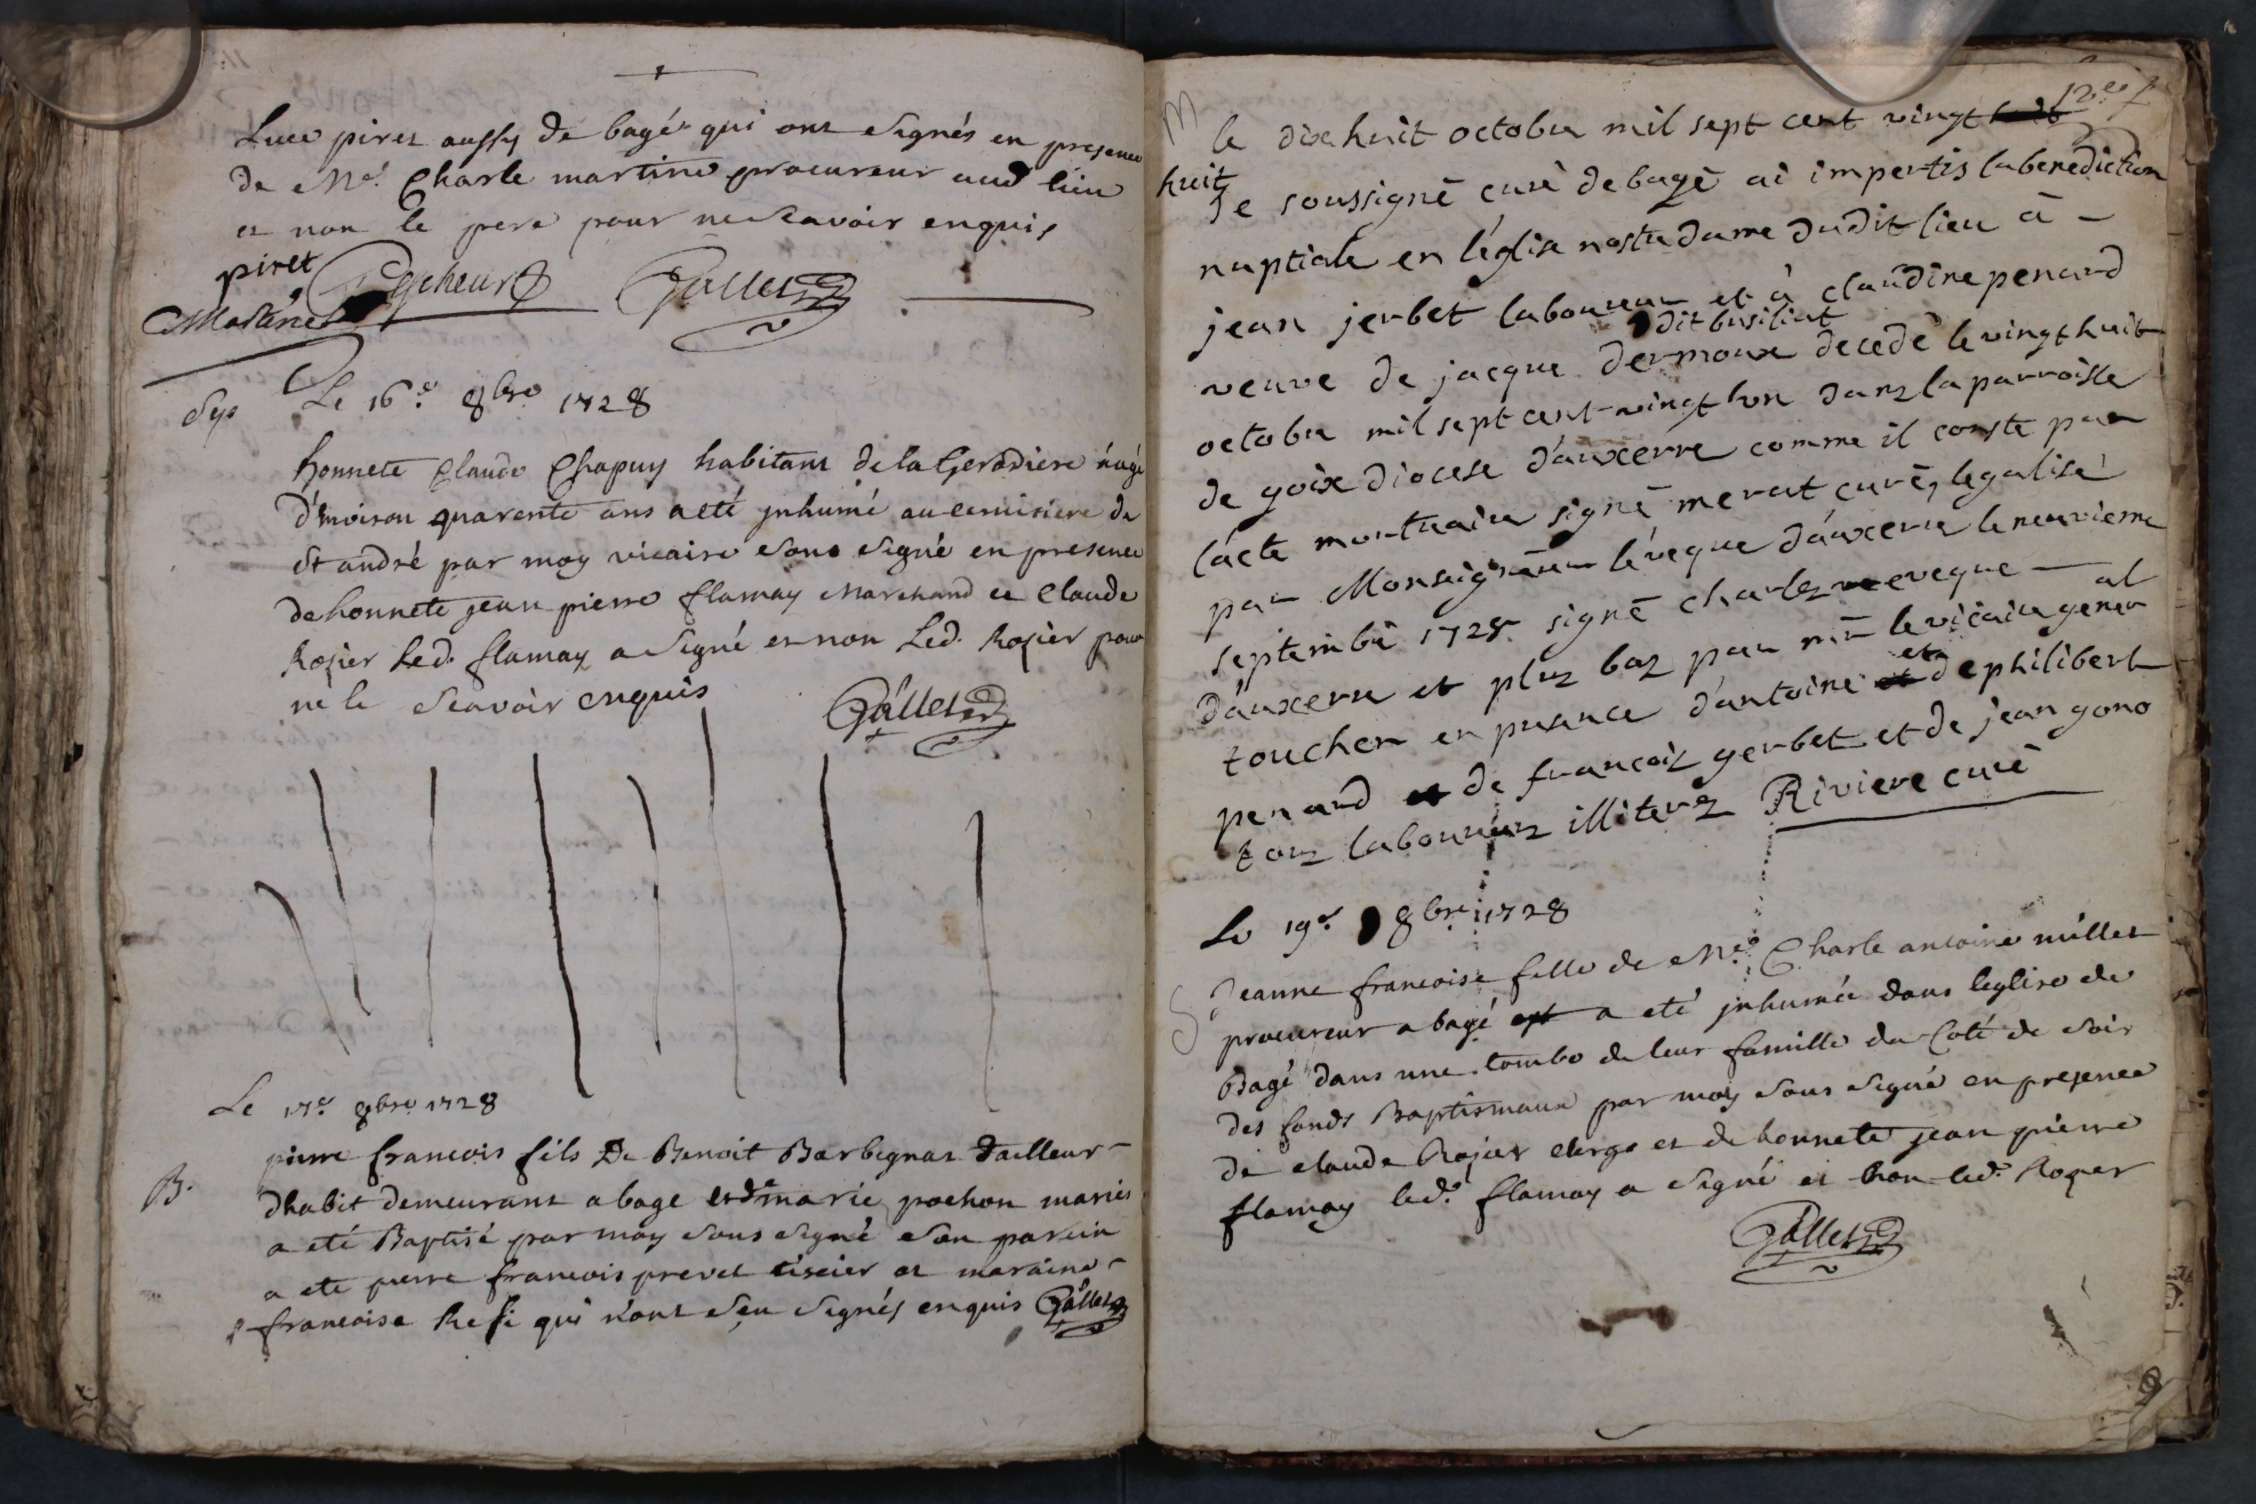 Luce piret aussy de bagé qui ont signés en presence
de Me. Charle martine procureur aud lieu
et non le pere pour ne scavoir enquis
piret
Gallet
Le 16e. 8bre 1728
honnete Claude Chapuy habitant de la Gerodiere âgé
d'environ quarente ans a eté jnhumé au cemitiere de
St andré par moy vicaire sous signé en presence
de honnete jean pierre flamay Marchand et Claude
Rozier Led. flamay a signé et non Led. Rozier pour
ne le scavoir enquis
Gallet
Le 17e 8bre 1728
B.
pierre francois fils De Benoit Barbegnat tailleur
dhabit demeurant a bage et de marie pochon mariés
a eté Baptisé par moy sous signé son parain
a ete pierre francois prevet tissier et maraine
francoise Resi qui n'ont sçu signés enquis Gallet
12e f
M
le dix huit octobre mil sept cent vingt huit
huit
Je soussigné curé de bagé ai impertis la benediction
nuptiale en l'églize nostre dame dudit lieu a
jean jerbet laboureur et a claudine penard
dit busiliat
veuve de jacque dermoux decedé le vingt huit
octobre mil sept cent vingt hun dans la parroisse
de goix diocese d'auxerre comme il conste par
l'acte mortuaire signé merat curé, legalisé
par Monseigneur l'évêque d'auxerre le neuvieme
septembre 1728 signé charles eveque
al
d'auxerre et plus bas par mr le vicaire gener
et
toucher en presence d'antoine et de philibert
penard et de francois gerbet et de jean gono
tous laboureurs illiterez Riviere curé
Le 19e 8bre 1728
S
Jeanne francoise fille de Me Charle antoine millet
procureur a bagé est a eté jnhumée dans leglise de
Bagé dans une tombe de leur famille du Coté de soir
des fonds Baptismaux par moy sous signé en presence
de claude Rozier clerge et de honnete jean pierre
flamay led. flamay a signé et non led. Rozier
Gallet